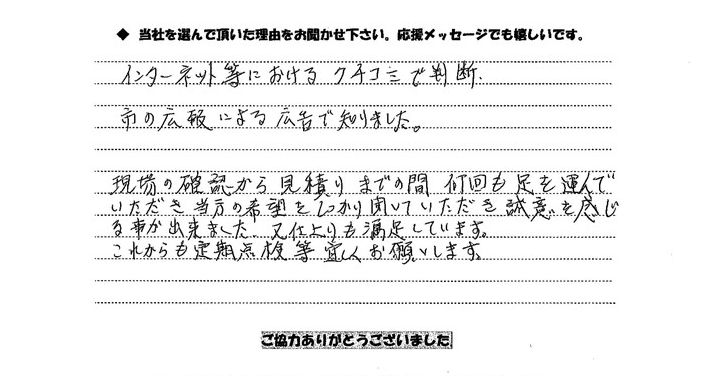 ◆ 当社を選んで頂いた理由をお聞かせ下さい。応援メッセージでも嬉しいです。
インターネット等における クチコミで判断.
市の広報による広告で知りました。
現場の確認から見積りまでの間 何回も足を運んで
いただき当方の希望をしっかり聞いていただき誠意を感じ
る事が出来ました. 又仕上りも満足しています。
これからも定期点検等宜しくお願いします。
ご協力ありがとうございました